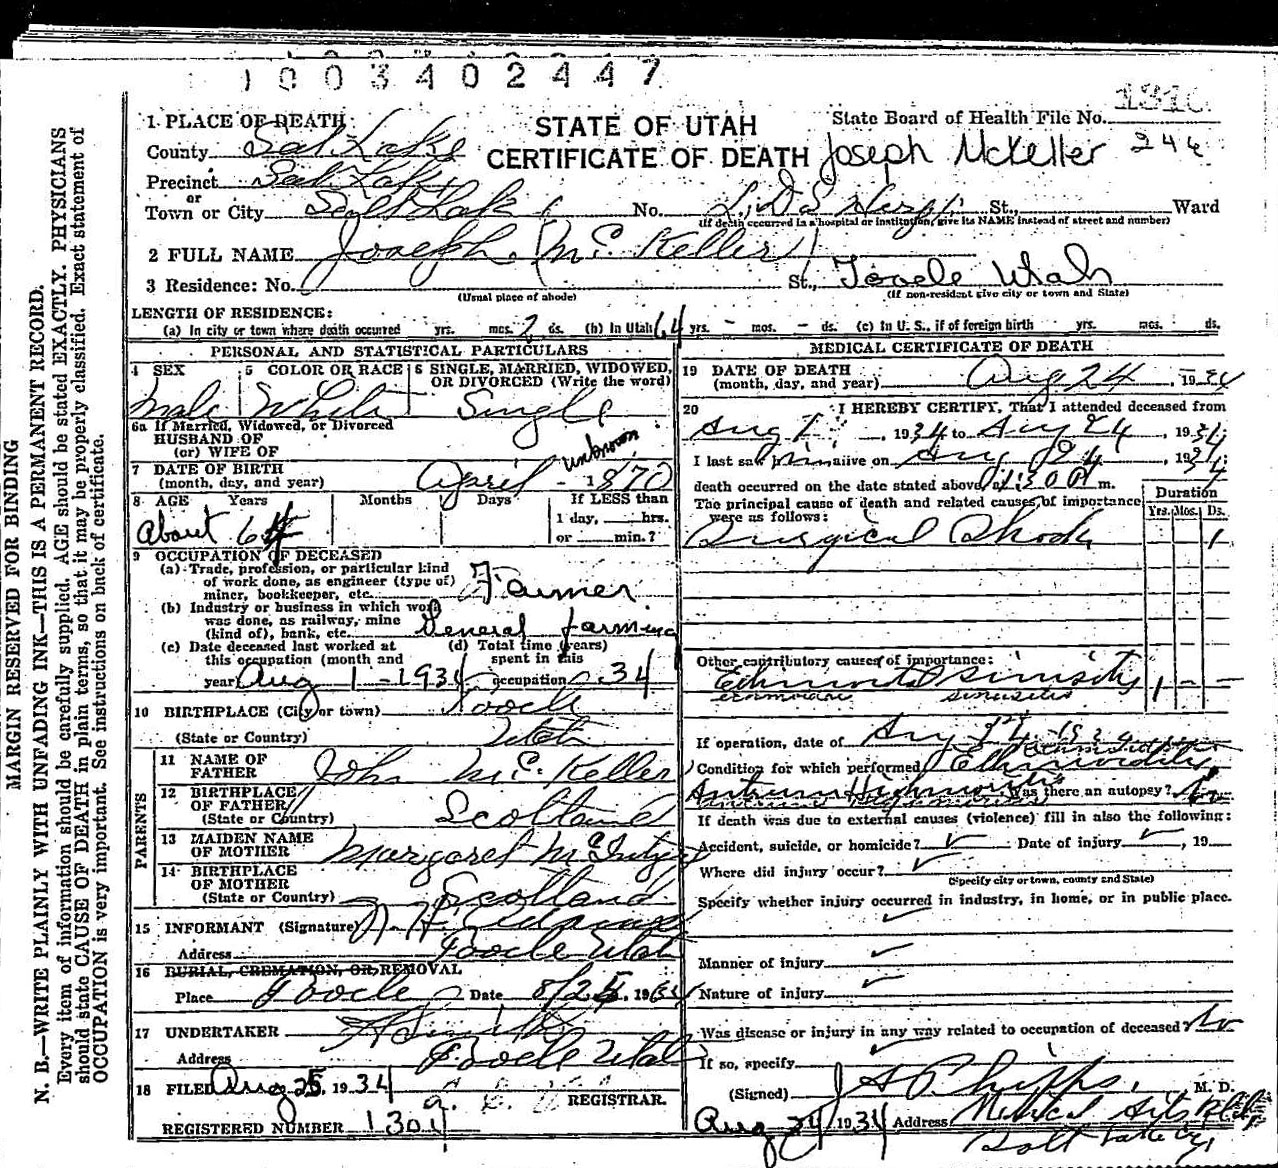 1003402447
1 PLACE OF DEATH
STATE OF UTAH
State Board of Health File No.
CERTIFICATE OF DEATH Joseph McKeller 244
County Salt Lake
Precinct Salt Lake
or
Town or City Salt Lake No. L.D.S Hosp. St., Ward
(If death occurred in a hospital or institution, give its NAME instead of street and number)
2 FULL NAME Joseph Mc Keller
3 Residence: No. St., Tooele Utah
(Usual place of abode) (If non-resident give city or town and State)
LENGTH OF RESIDENCE:
(a) In city or town where death occurred yrs. mos. 2 ds. (b) In Utah 64 yrs. - mos. - ds. (c) In U. S., if of foreign birth yrs. mos. ds.
PERSONAL AND STATISTICAL PARTICULARS
4 SEX 5 COLOR OR RACE 6 SINGLE, MARRIED, WIDOWED,
OR DIVORCED (Write the word)
Male White Single
6a If Married, Widowed, or Divorced
HUSBAND OF
(or) WIFE OF
7 DATE OF BIRTH
(month, day, and year) April - unknown 1870
8 AGE Years Months Days If LESS than
1 day, hrs.
or min.?
About 64
9 OCCUPATION OF DECEASED
(a) Trade, profession, or particular kind
of work done, as engineer (type of)
miner, bookkeeper, etc. Farmer
(b) Industry or business in which work
was done, as railway, mine
(kind of), bank, etc. General farming
(c) Date deceased last worked at (d) Total time (years)
this occupation (month and spent in this
year) Aug 1 - 1934 occupation 34
10 BIRTHPLACE (City or town) Tooele
(State or Country) Utah
PARENTS
11 NAME OF
FATHER John Mc Keller
12 BIRTHPLACE
OF FATHER Scotland
(State or Country)
13 MAIDEN NAME
OF MOTHER Margaret
14 BIRTHPLACE
OF MOTHER Scotland
(State or Country)
15 INFORMANT (Signature)
Address Tooele Utah
16 BURIAL, CREMATION, OR REMOVAL
Place Tooele Date 8/25, 1934
17 UNDERTAKER
Address Tooele Utah
18 FILED Aug 25, 1934 REGISTRAR.
REGISTERED NUMBER 1304
MEDICAL CERTIFICATE OF DEATH
19 DATE OF DEATH
(month, day, and year) Aug 24, 1934
20 I HEREBY CERTIFY, That I attended deceased from
Aug, 1934 to Aug 24, 1934
I last saw him alive on Aug 24, 1934
death occurred on the date stated above m.
The principal cause of death and related causes of importance
were as follows:
Duration
Yrs. Mos. Ds.
Surgical Shock 1
Other contributory causes of importance:
1 - -
If operation, date of Aug 24 - 1934
Condition for which performed
Was there an autopsy? No
If death was due to external causes (violence) fill in also the following:
Accident, suicide, or homicide? Date of injury, 19
Where did injury occur?
(Specify city or town, county and State)
Specify whether injury occurred in industry, in home, or in public place.
Manner of injury
Nature of injury
Was disease or injury in any way related to occupation of deceased No
If so, specify
(Signed) J A Phipps, M. D.
Aug 24 1934 Address Medical Arts Bldg
Salt Lake City
MARGIN RESERVED FOR BINDING
N. B.—WRITE PLAINLY WITH UNFADING INK—THIS IS A PERMANENT RECORD.
Every item of information should be carefully supplied. AGE should be stated EXACTLY. PHYSICIANS
should state CAUSE OF DEATH in plain terms, so that it may be properly classified. Exact statement of
OCCUPATION is very important. See instructions on back of certificate.